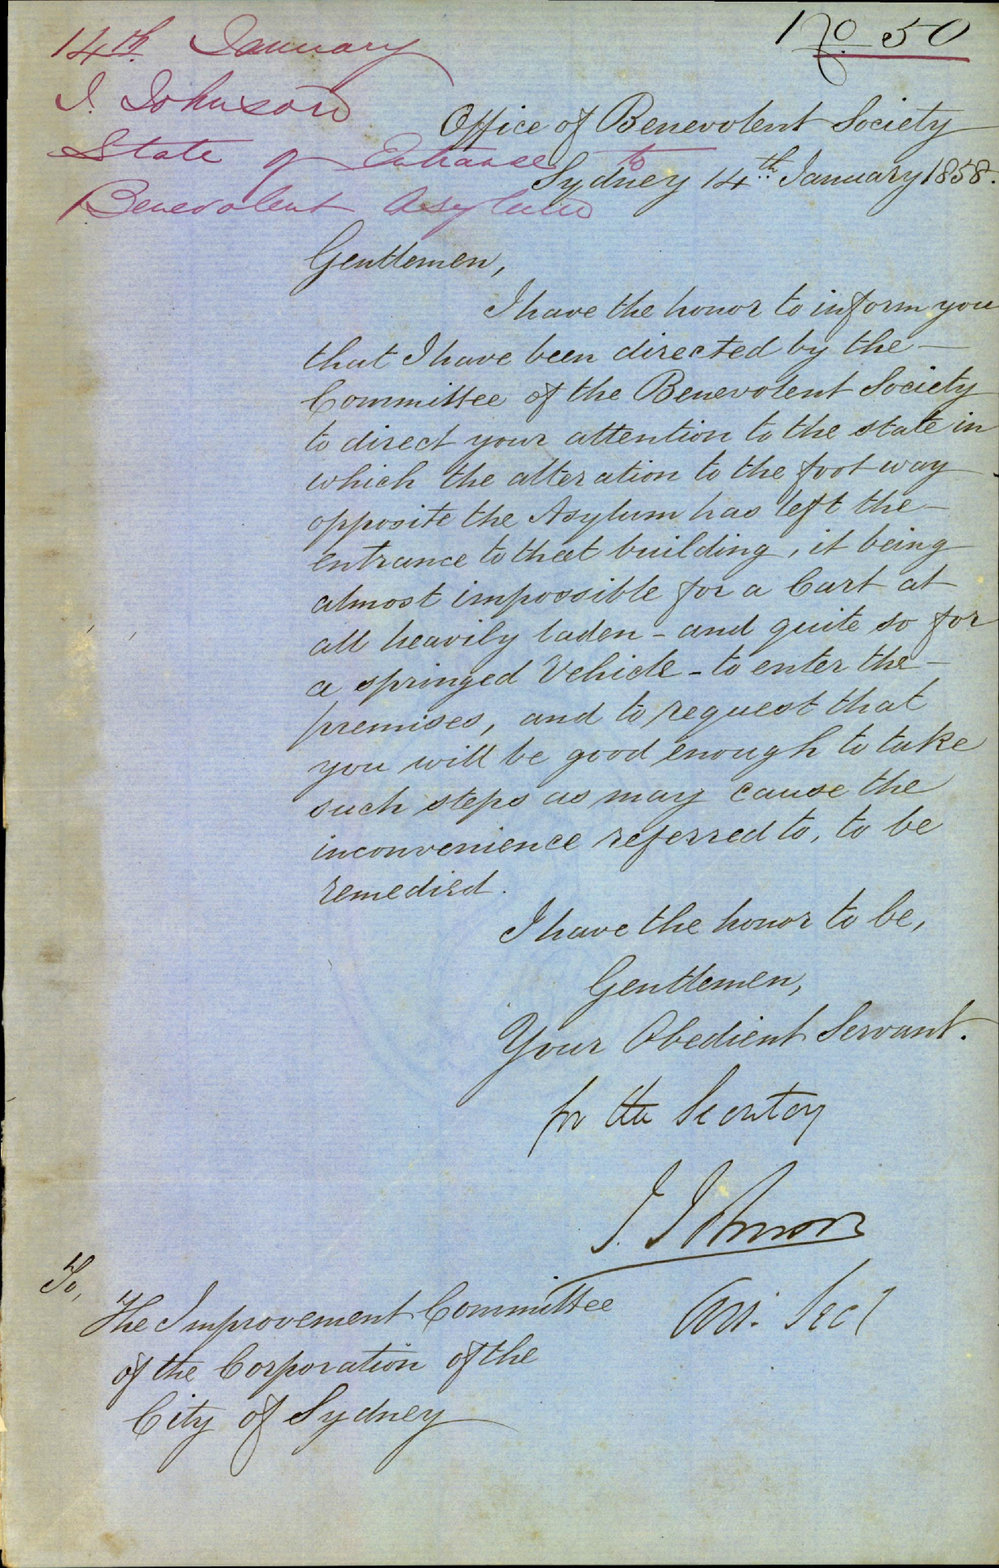 No. 50
14th January
J. Johnson
State of Entrance to
Benevolent Asylum
Office of Benevolent Society
Sydney 14th January 1858.
Gentlemen,
I have the honor to inform you
that I have been directed by the
Committee of the Benevolent Society
to direct your attention to the state in
which the alteration to the foot way
opposite the Asylum has left the
entrance to that building, it being
almost impossible for a Cart at
all heavily laden - and quite so for
a springed Vehicle - to enter the
premises, and to request that
you will be good enough to take
such steps as may cause the
inconvenience referred to, to be
remedied.
I have the honor to be,
Gentlemen,
Your Obedient Servant.
for the Secretary
J. Johnson
Assi. Sect
To,
The Improvement Committee
of the Corporation of the
City of Sydney